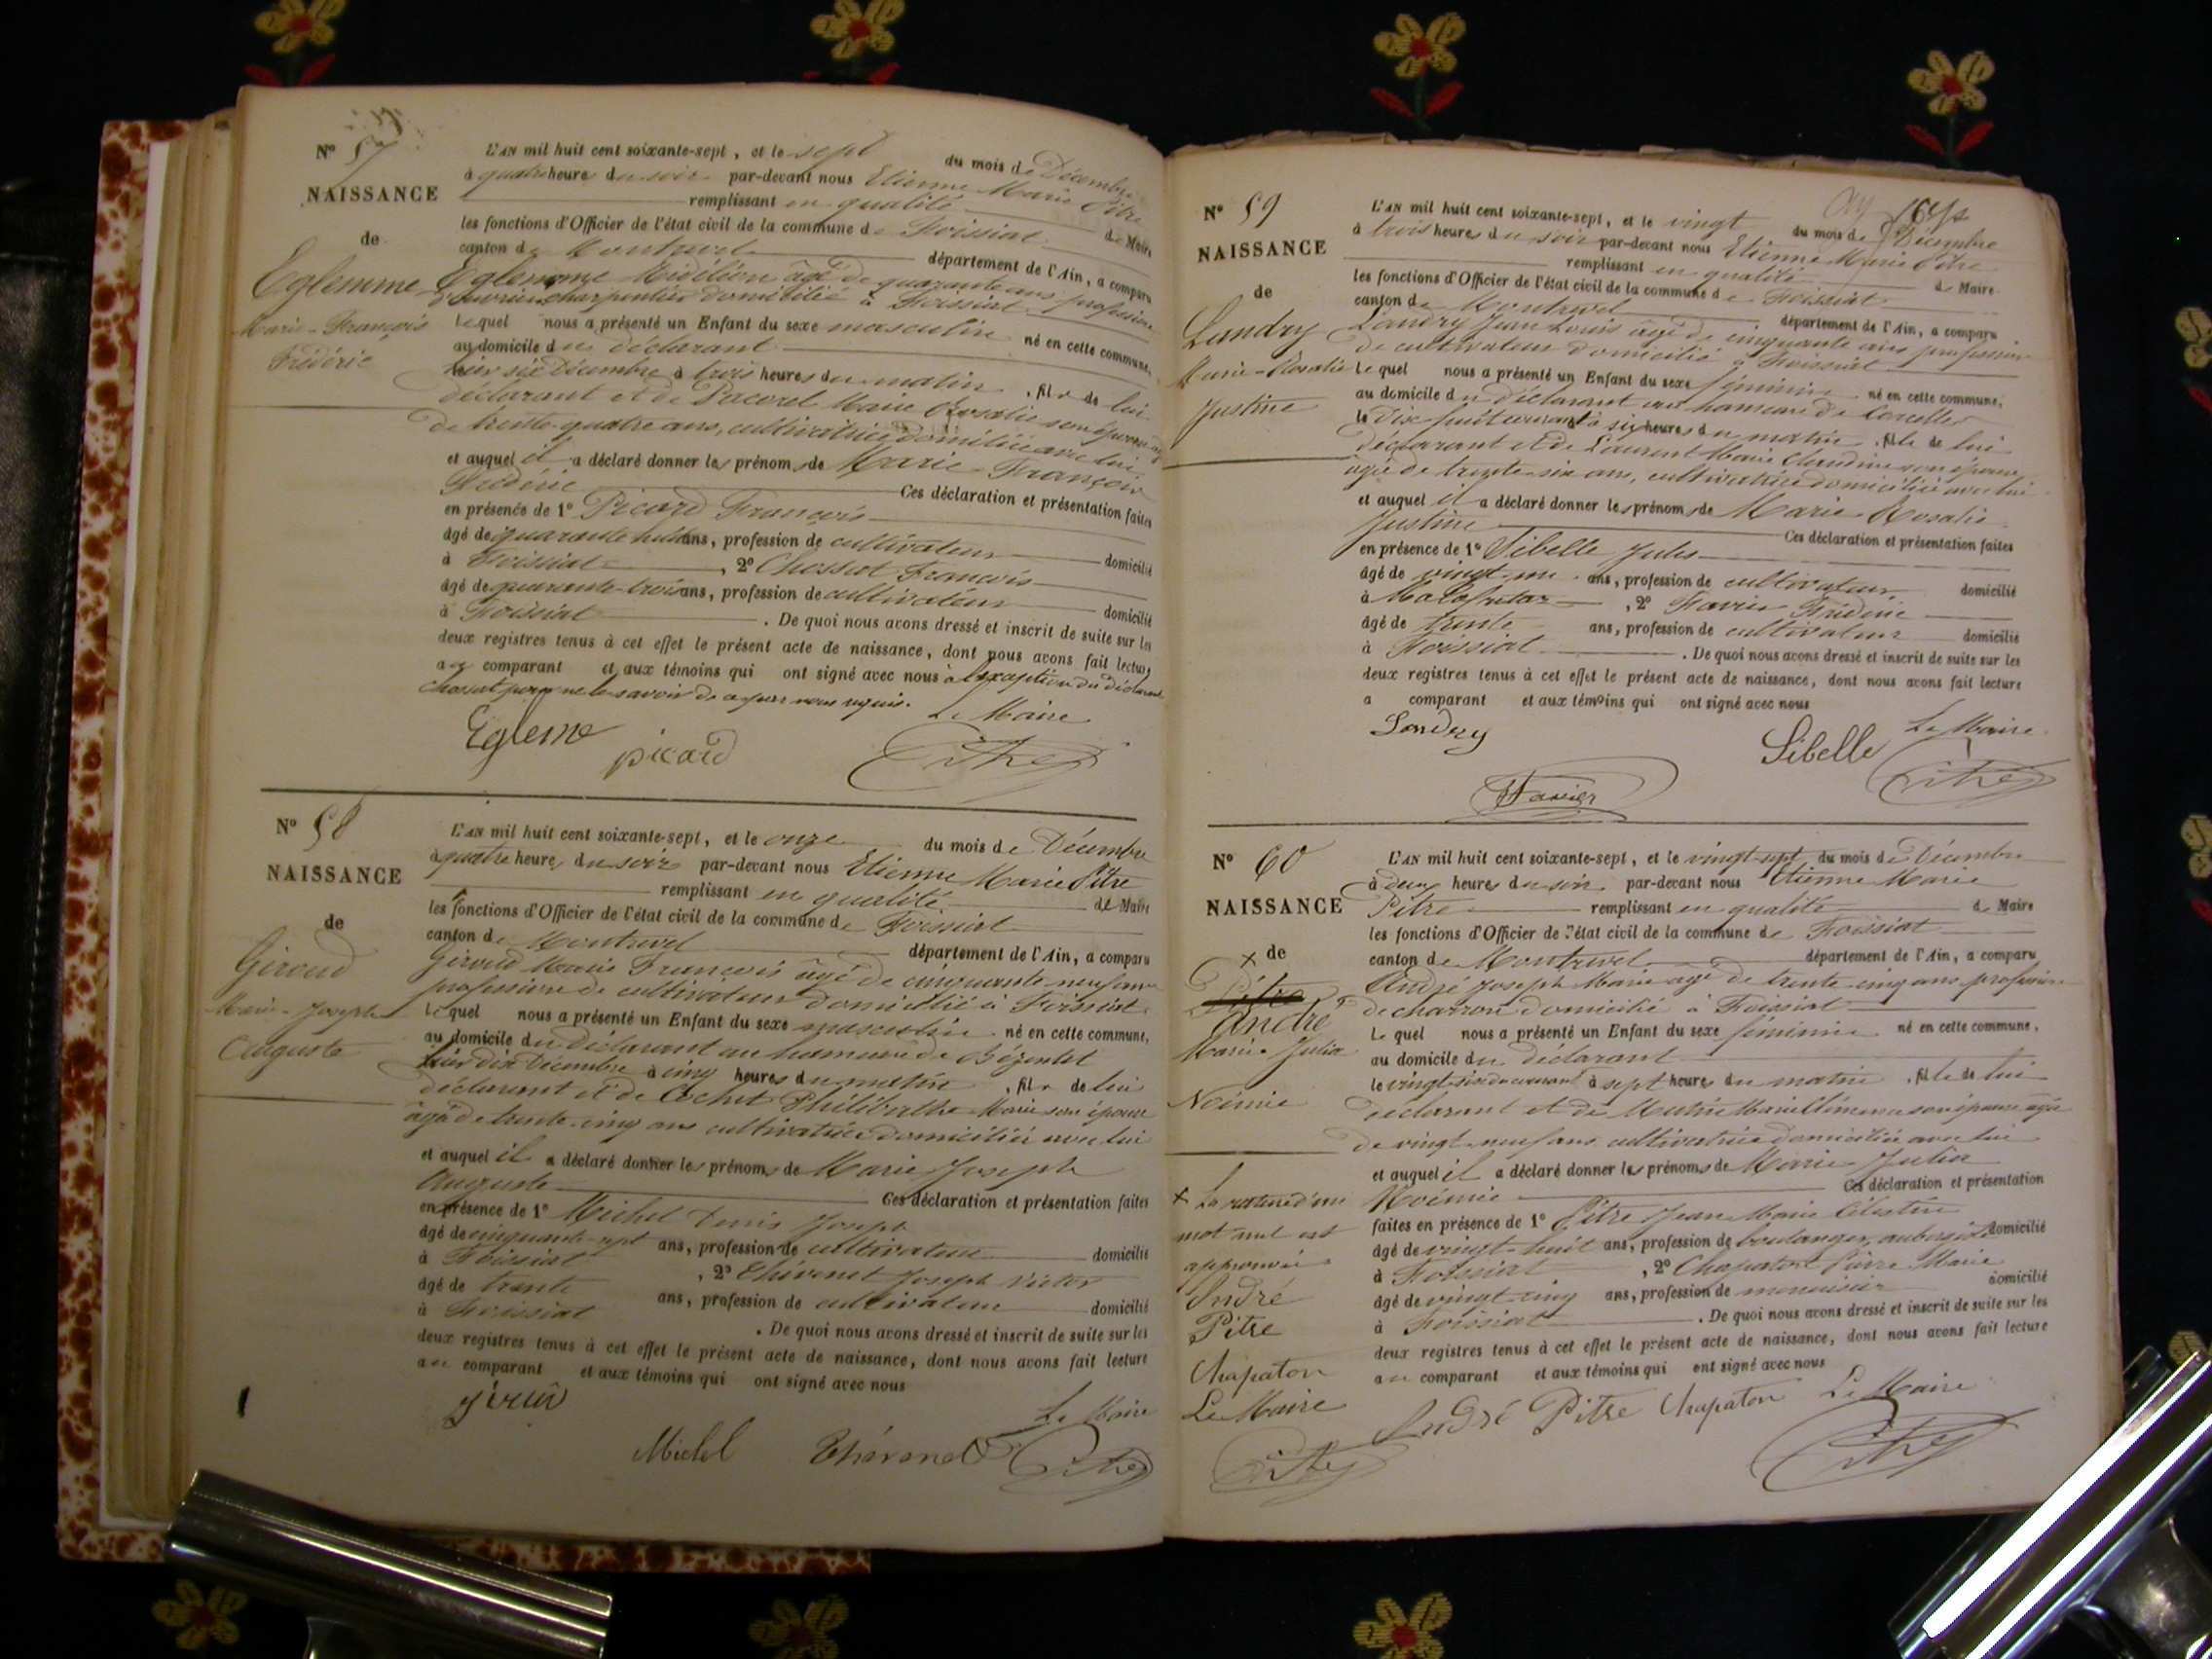 N° 57
NAISSANCE
de
Eglemme
Marie-François
Frédéric
L'AN mil huit cent soixante-sept, et le sept du mois de Décembre
à quatre heures du soir par-devant nous Etienne Marie Pitre
remplissant en qualité de Maire
les fonctions d'Officier de l'état civil de la commune de Foissiat
canton de Montrevel département de l'Ain, a comparu
Eglemme âgé de quarante ans profession
charpentier domicilié à Foissiat
Lequel nous a présenté un Enfant du sexe masculin né en cette commune,
au domicile du déclarant
hier six Décembre à trois heures du matin, fils de lui
déclarant et de Pacoret Marie Rosalie son épouse
de trente-quatre ans, cultivatrice domiciliée avec lui
et auquel il a déclaré donner les prénoms de Marie-François
Frédéric Ces déclaration et présentation faites
en présence de 1° Picard François
âgé de quarante huit ans, profession de cultivateur domicilié
à Foissiat, 2° Chossat François
âgé de quarante-trois ans, profession de cultivateur domicilié
à Foissiat. De quoi nous avons dressé et inscrit de suite sur les
deux registres tenus à cet effet le présent acte de naissance, dont nous avons fait lecture
au comparant et aux témoins qui ont signé avec nous à l'exception du déclarant
Chossat pour ne le savoir de ce par nous requis.
Le Maire
Egleme picard Pitre
N° 58
NAISSANCE
de
Giroud
Marie-Joseph
Auguste
L'AN mil huit cent soixante-sept, et le onze du mois de Décembre
à quatre heures du soir par-devant nous Etienne Marie Pitre
remplissant en qualité de Maire
les fonctions d'Officier de l'état civil de la commune de Foissiat
canton de Montrevel département de l'Ain, a comparu
Giroud Marie François âgé de cinquante neuf ans
profession de cultivateur domicilié à Foissiat
Lequel nous a présenté un Enfant du sexe masculin né en cette commune,
au domicile du déclarant au hameau de
hier dix Décembre à cinq heures du matin, fils de lui
déclarant et de Cochet Philiberthe Marie son épouse
âgée de trente-cinq ans cultivatrice domiciliée avec lui
et auquel il a déclaré donner les prénoms de Marie Joseph
Auguste Ces déclaration et présentation faites
en présence de 1° Michel Denis Joseph
âgé de cinquante-sept ans, profession de cultivateur domicilié
à Foissiat, 2° Thévenet Joseph Victor
âgé de trente ans, profession de cultivateur domicilié
à Foissiat. De quoi nous avons dressé et inscrit de suite sur les
deux registres tenus à cet effet le présent acte de naissance, dont nous avons fait lecture
au comparant et aux témoins qui ont signé avec nous
Le Maire
Michel Thévenet Pitre
N° 59
NAISSANCE
de
Landry
Marie-Rosalie
Justine
L'AN mil huit cent soixante-sept, et le vingt du mois de Décembre
à trois heures du soir par-devant nous Etienne Marie Pitre
remplissant en qualité de Maire
les fonctions d'Officier de l'état civil de la commune de Foissiat
canton de Montrevel département de l'Ain, a comparu
Landry Jean Louis âgé de cinquante ans profession
de cultivateur domicilié à Foissiat
Lequel nous a présenté un Enfant du sexe féminin né en cette commune,
au domicile du déclarant au hameau de Corcelles
le dix-huit courant à six heures du matin, fille de lui
déclarant et de Laurent Marie Claudine son épouse
âgée de trente-six ans, cultivatrice domiciliée avec lui
et auquel il a déclaré donner les prénoms de Marie-Rosalie
Justine Ces déclaration et présentation faites
en présence de 1° Sibelle Jules
âgé de vingt-un ans, profession de cultivateur domicilié
à Malafretaz, 2° Favier Frédéric
âgé de trente ans, profession de cultivateur domicilié
à Foissiat. De quoi nous avons dressé et inscrit de suite sur les
deux registres tenus à cet effet le présent acte de naissance, dont nous avons fait lecture
a comparant et aux témoins qui ont signé avec nous
Le Maire
Landry Sibelle Pitre
Favier
N° 60
NAISSANCE
× de
Pitre
André
Marie-Julia
Noémie
× La rature d'un
mot nul est
approuvée
André
Pitre
Chapaton
Le Maire
Pitre
L'AN mil huit cent soixante-sept, et le vingt-sept du mois de Décembre
à deux heures du soir par-devant nous Etienne Marie
Pitre remplissant en qualité de Maire
les fonctions d'Officier de l'état civil de la commune de Foissiat
canton de Montrevel département de l'Ain, a comparu
André Joseph Marie âgé de trente cinq ans profession
de charron domicilié à Foissiat
Lequel nous a présenté un Enfant du sexe féminin né en cette commune,
au domicile du déclarant
le vingt-six du courant à sept heures du matin, fille de lui
déclarant et de Marie son épouse âgée
de vingt-neuf ans cultivatrice domiciliée avec lui
et auquel il a déclaré donner les prénoms de Marie-Julia
Noémie Ces déclaration et présentation
faites en présence de 1° Pitre Jean Marie Célestin
âgé de vingt-huit ans, profession de boulanger, aubergiste domicilié
à Foissiat, 2° Chapaton Pierre Marie
âgé de vingt-cinq ans, profession de menuisier domicilié
à Foissiat. De quoi nous avons dressé et inscrit de suite sur les
deux registres tenus à cet effet le présent acte de naissance, dont nous avons fait lecture
au comparant et aux témoins qui ont signé avec nous
André Pitre Chapaton Le Maire
Pitre